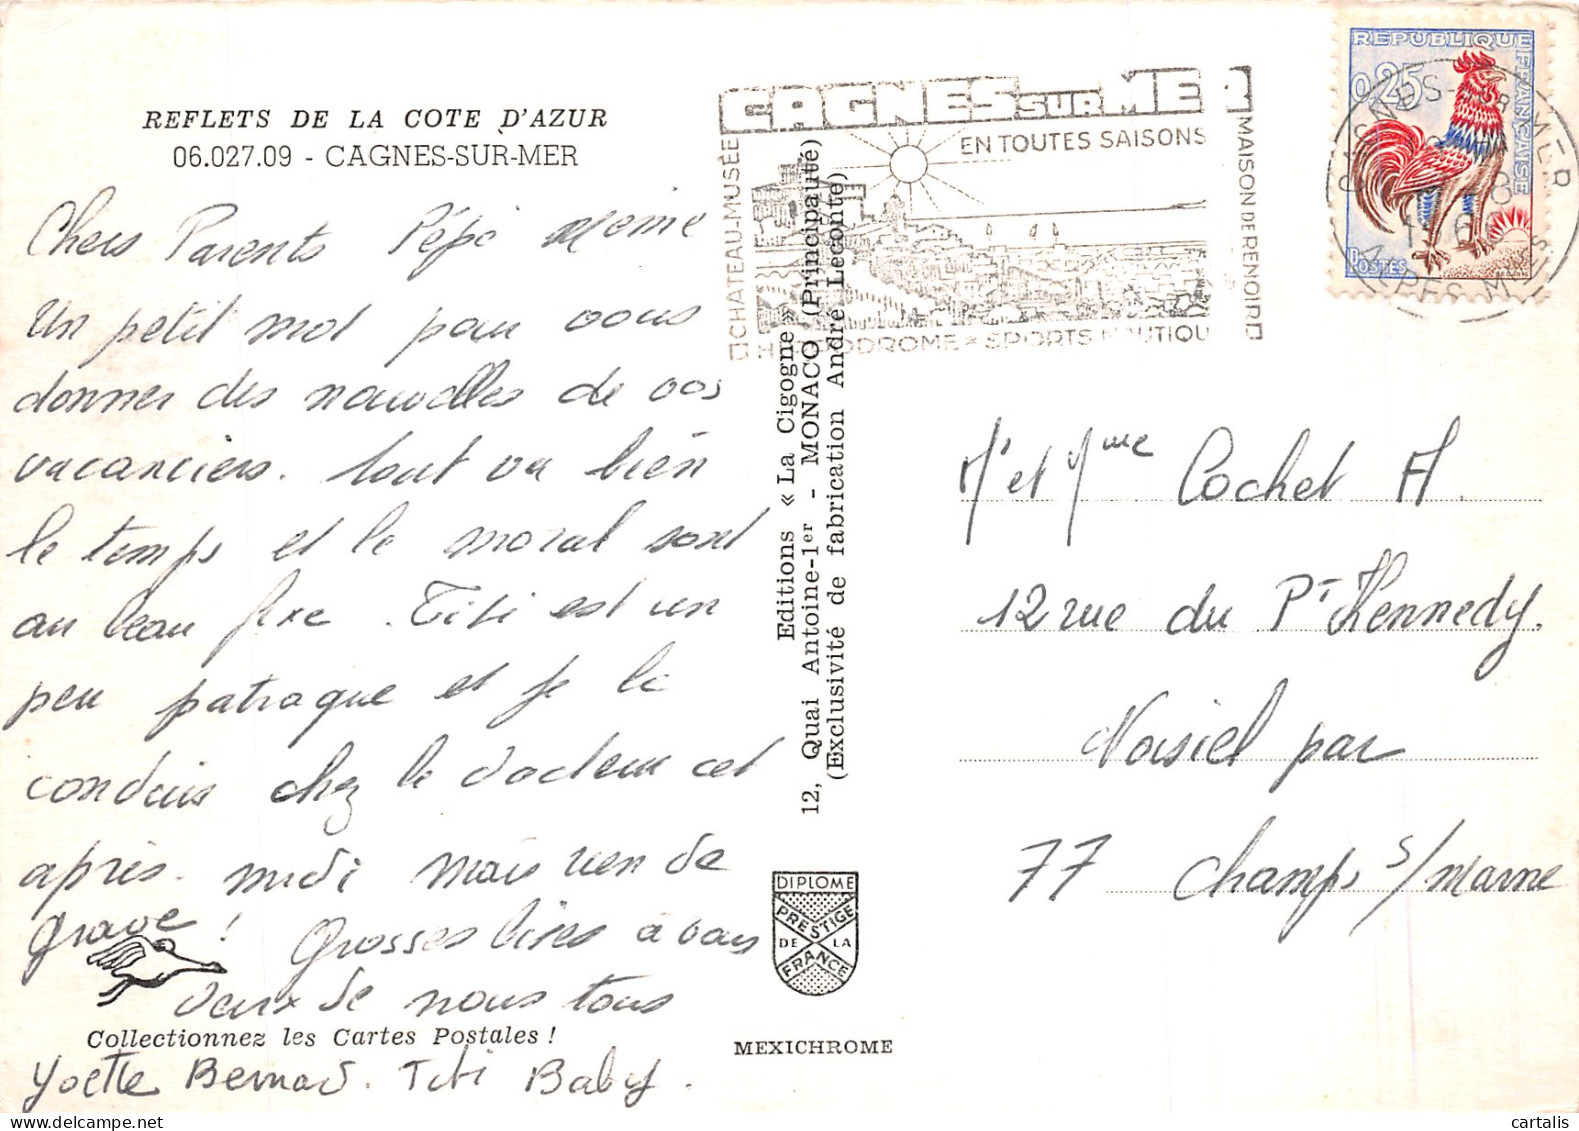 REFLETS DE LA COTE D'AZUR
06.027.09 - CAGNES-SUR-MER
Chers Parents Pépé Mémé
Un petit mot pour vous
donner des nouvelles de vos
vacanciers. tout va bien
le temps et le moral sont
au beau fixe. Titi est un
peu patraque et je le
conduis chez le docteur cet
après-midi mais rien de
grave ! Grosses bises à vous
deux de nous tous
Collectionnez les Cartes Postales !
Yvette Bernard. Titi Baby.
Editions « La Cigogne »
12, Quai Antoine-1er - MONACO (Principauté)
(Exclusivité de fabrication André Leconte)
DIPLOME
PRESTIGE
DE LA
FRANCE
MEXICHROME
CAGNES SUR MER
EN TOUTES SAISONS
CHATEAU-MUSÉE
MAISON DE RENOIR
HIPPODROME * SPORTS NAUTIQU
REPUBLIQUE FRANÇAISE
0,25
POSTES
CAGNES-SUR-MER
ALPES-MMES
Mr et Mme Cochet A.
12 rue du Pt Kennedy.
Noisiel par
77 Champs s/Marne
cartalis
delcampe.net